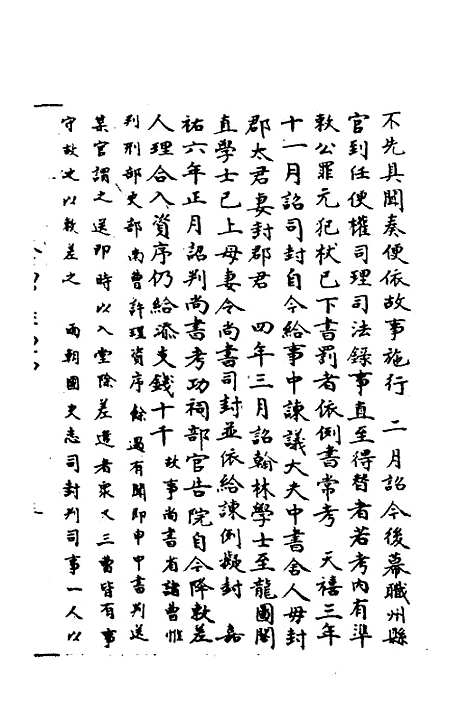 不先具聞奏便依故事施行　二月詔今後幕職州縣
官到任便權司理司法錄事直至得替者若考內有準
敕公罪元犯杖已下書罰者依例書常考　天禧三年
十一月詔司封自今給事中諫議大夫中書舍人母封
郡太君妻封郡君　四年三月詔翰林學士至龍圖閣
直學士已上母妻令尚書司封並依給諫例擬封　嘉
祐六年正月詔判尚書考功祠部官告院自今降敕差
人理合入資序仍給添支錢十千　故事尚書省諸曹惟
判刑部吏部南曹許理資序餘遇有闕即申中書判送
某官謂之送即時以入堂除差遣者眾又三曹皆有事
守故更以敕差之　兩朝國史志司封判司事一人以